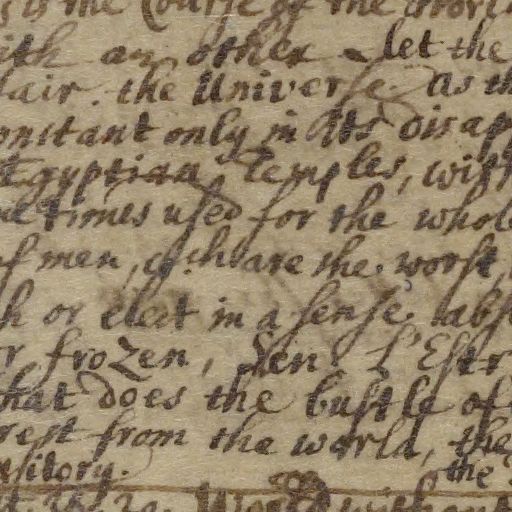 is the Course of the World
with an other let the
the Universe. as th
constant only in its disap
Egyptian Temples, with
times used for the whole
of men, wch are the worst,
or elect in a sense abs
or frozen, Sen: L'Estr
what does the bustle of
rest from the world, the
the
World without